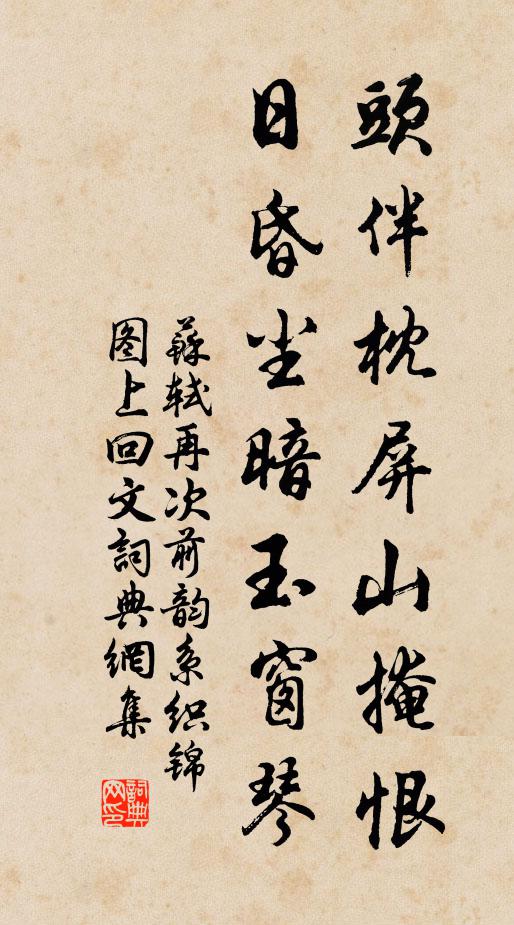 頭伴枕屏山掩恨
日昏尘暗玉窗琴
蘇轼再次前韵系织锦
图上回文詞典網集
詞典
网印